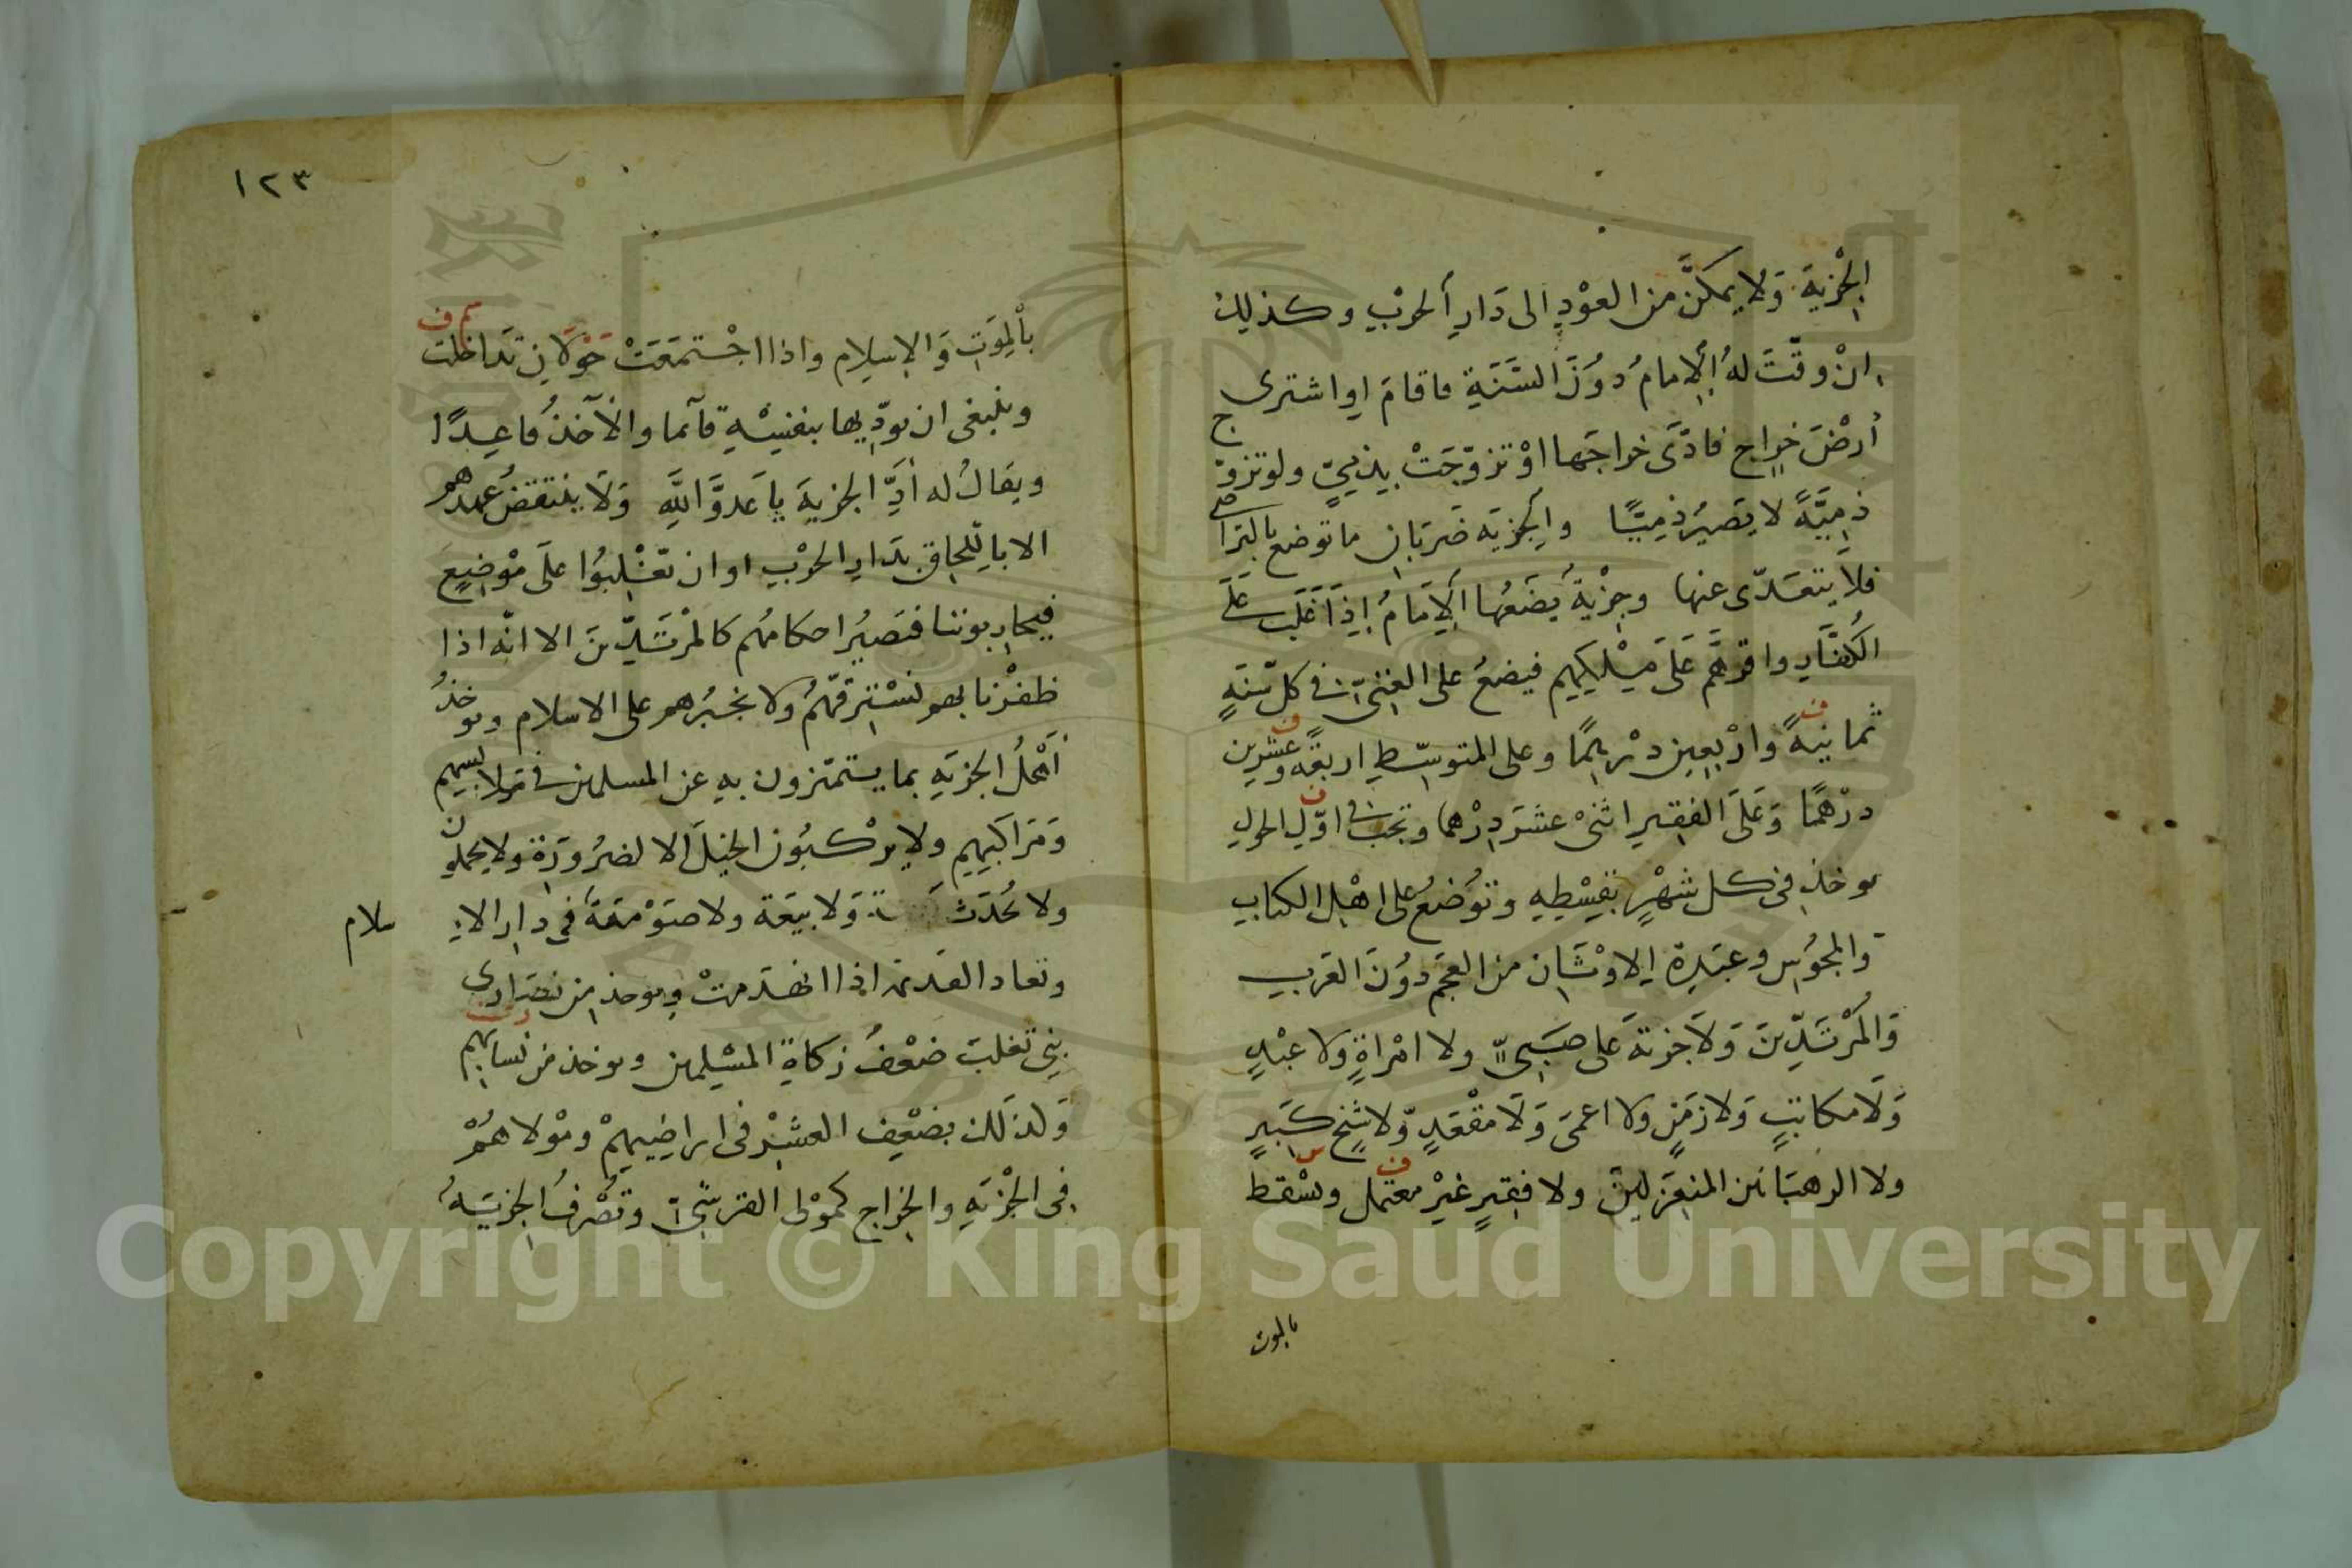 الجِزْيَةَ وَلا يمكَّنُ من العوْدِ الى دَارِ الحرْبِ وكذلِكَ
انْ وقّتَ لهُ الإِمامُ دوُنَ السَّنَةِ فاقامَ او اشترى
أرْضَ خراجٍ فادَّى خراجَها اوْ تزوّجَتْ بذِميٍّ ولو تزوّج
ذمِيَّةً لا يَصيُر ذمِيًّا والجزيَه ضَربَانِ ما توضع بالتراضي
فلا يتعَدّى عنها وجِزْيةُ يضَعُها الإِمَامُ إِذَا غَلَبَ عَلَى
الكُفَّارِ واقرهَّم عَلَى مِلْكِهِم فيضعُ على الغنيّ في كل سَنَةٍ
ثمانيةً وارْبعِين درْهمًا وعلى المتوسّطِ اربعًة وعشرين
درْهمًا وَعَلَى الفقيرِ اثنىْ عشَرَ دِرْهما وتجب في اوّلِ الحولِ
يوخذ في كل شهْرٍ بقِسْطِهِ وتوُضعُ على اهْلِ الكتابِ
والمجوُسِ وعبَدِة الاوْثَانِ من العجَم دوُنَ العَربِ
وَالمُرْتَدِّينَ وَلاَ جزيَة عَلى صَبِىٍّ ولا امْراةٍ ولا عبْدٍ
وَلَا مكاتبٍ وَلا زمَنٍ ولا اعمىَ وَلَا مقْعَدٍ وّلا شَيْخ كَبيرٍ
ولا الرهبَانين المنعَزلين ولا فقيرٍ غيْر معتمل وتسْقط
بالموت
١٢٣
بالموَتِ وَالاسِلام واذا اجْتمعَتْ حَوْلانِ تداخلت
وينبغى ان يودّيها بنفسِهِ قآئما والآخذُ قاعِدًا
ويقَالُ له أدِّ الجزيةَ ياَ عَدوَّ اللَّهِ وَلَا ينتقضُ عهدهم
الا باللِحاقِ بدَارِ الحرْبِ او ان تغْلبوُا علَى موْضِعٍ
فيحاربوننا فتَصيُر احكامُهم كالمرْتَدّينَ الا انّه اذا
ظفْرنا بهم نسْترقّهُم ولا نجبُرهم على الاسلام ويوخذُ
أهْلُ الجزيَهِ بما يتميّزون به عن المسلمين في ملابسهم
وَمَراكبِهِم ولا يرْكبوُن الخيلَ الا لضرُورَة ولا يحملون
ولا تُحدَث وَلا بيَعَة ولا صَوْمَعَة في دار الا سلام
وتعاد القديمة اذا انهدَمتْ ويوخذ من نصَارى
بنِى تغلبَ ضعْفُ زكاةِ المسْلِمين ويوخذ من نسايهم
وَلذلك يضعف العشْر في اراضِيهِمْ وموْلاهُمْ
في الجزْيَهِ والخراج كموْلى القرشيّ وتُصْرفُ الجزيَةُ